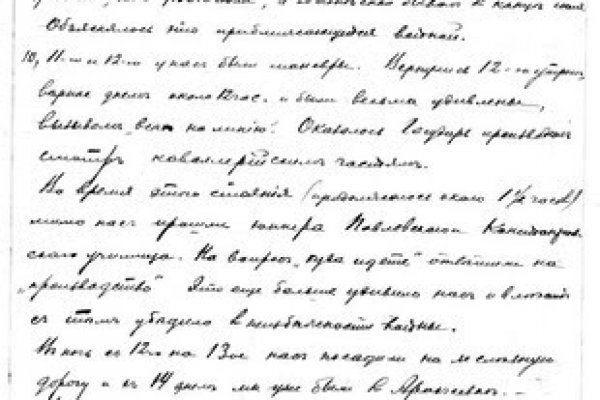 Объяснялось это приближающейся войной.
10, 11-го и 12-го у нас были маневры. Вернулись 12-го утром,
вернее днем около 12 час. и были весьма удивлены,
вызовом „всех на линию“. Оказалось Государь производил
смотр кавалерийским частям.
Во время этого стояния (продолжалось около 1 1/2 часов)
мимо нас прошли юнкера Павловского Константинов-
ского училища. На вопрос „куда идете“ отвечали на
„производство“ Это еще больше удивило нас и
с тем убедило в неизбежности войны.
В ночь с 12го на 13ое нас посадили на железную
дорогу и 14 днем мы уже были в